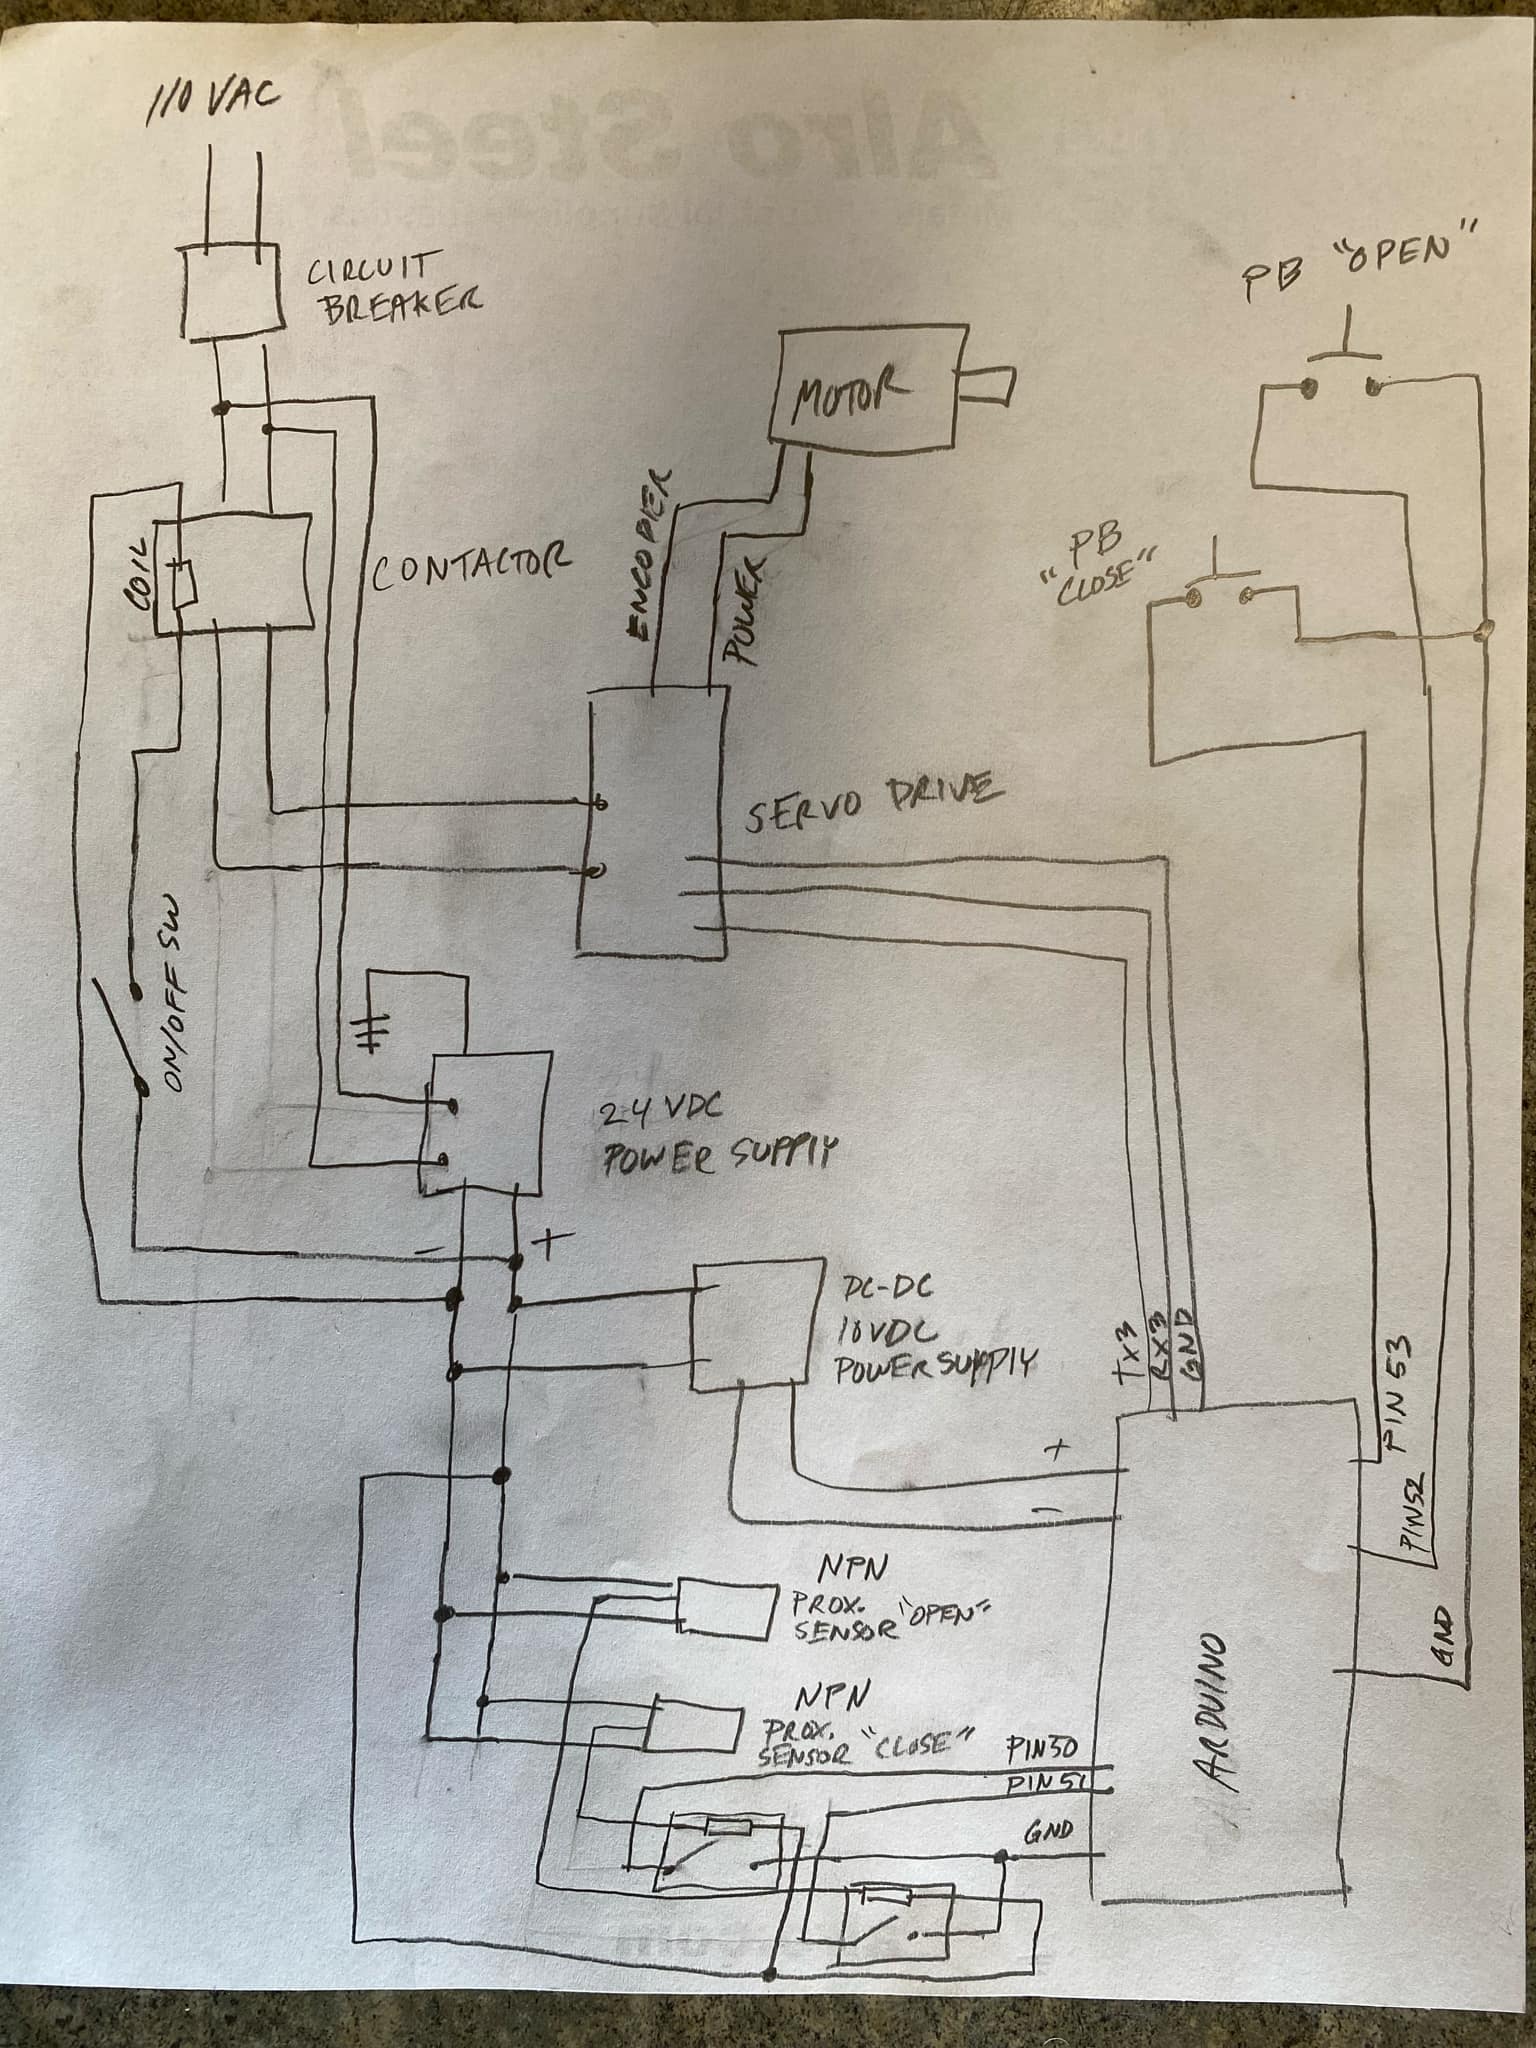 110 VAC
CIRCUIT
BREAKER
PB "OPEN"
MOTOR
COIL
CONTACTOR
ENCODER
POWER
PB
"CLOSE"
SERVO DRIVE
ON/OFF SW
24 VDC
POWER SUPPLY
- +
DC-DC
10VDC
POWER SUPPLY
TX3
RX3
GND
PIN 53
PIN52
GND
+
-
NPN
PROX.
SENSOR "OPEN"
NPN
PROX.
SENSOR "CLOSE"
PIN50
PIN51
GND
ARDUINO
Alro Steel